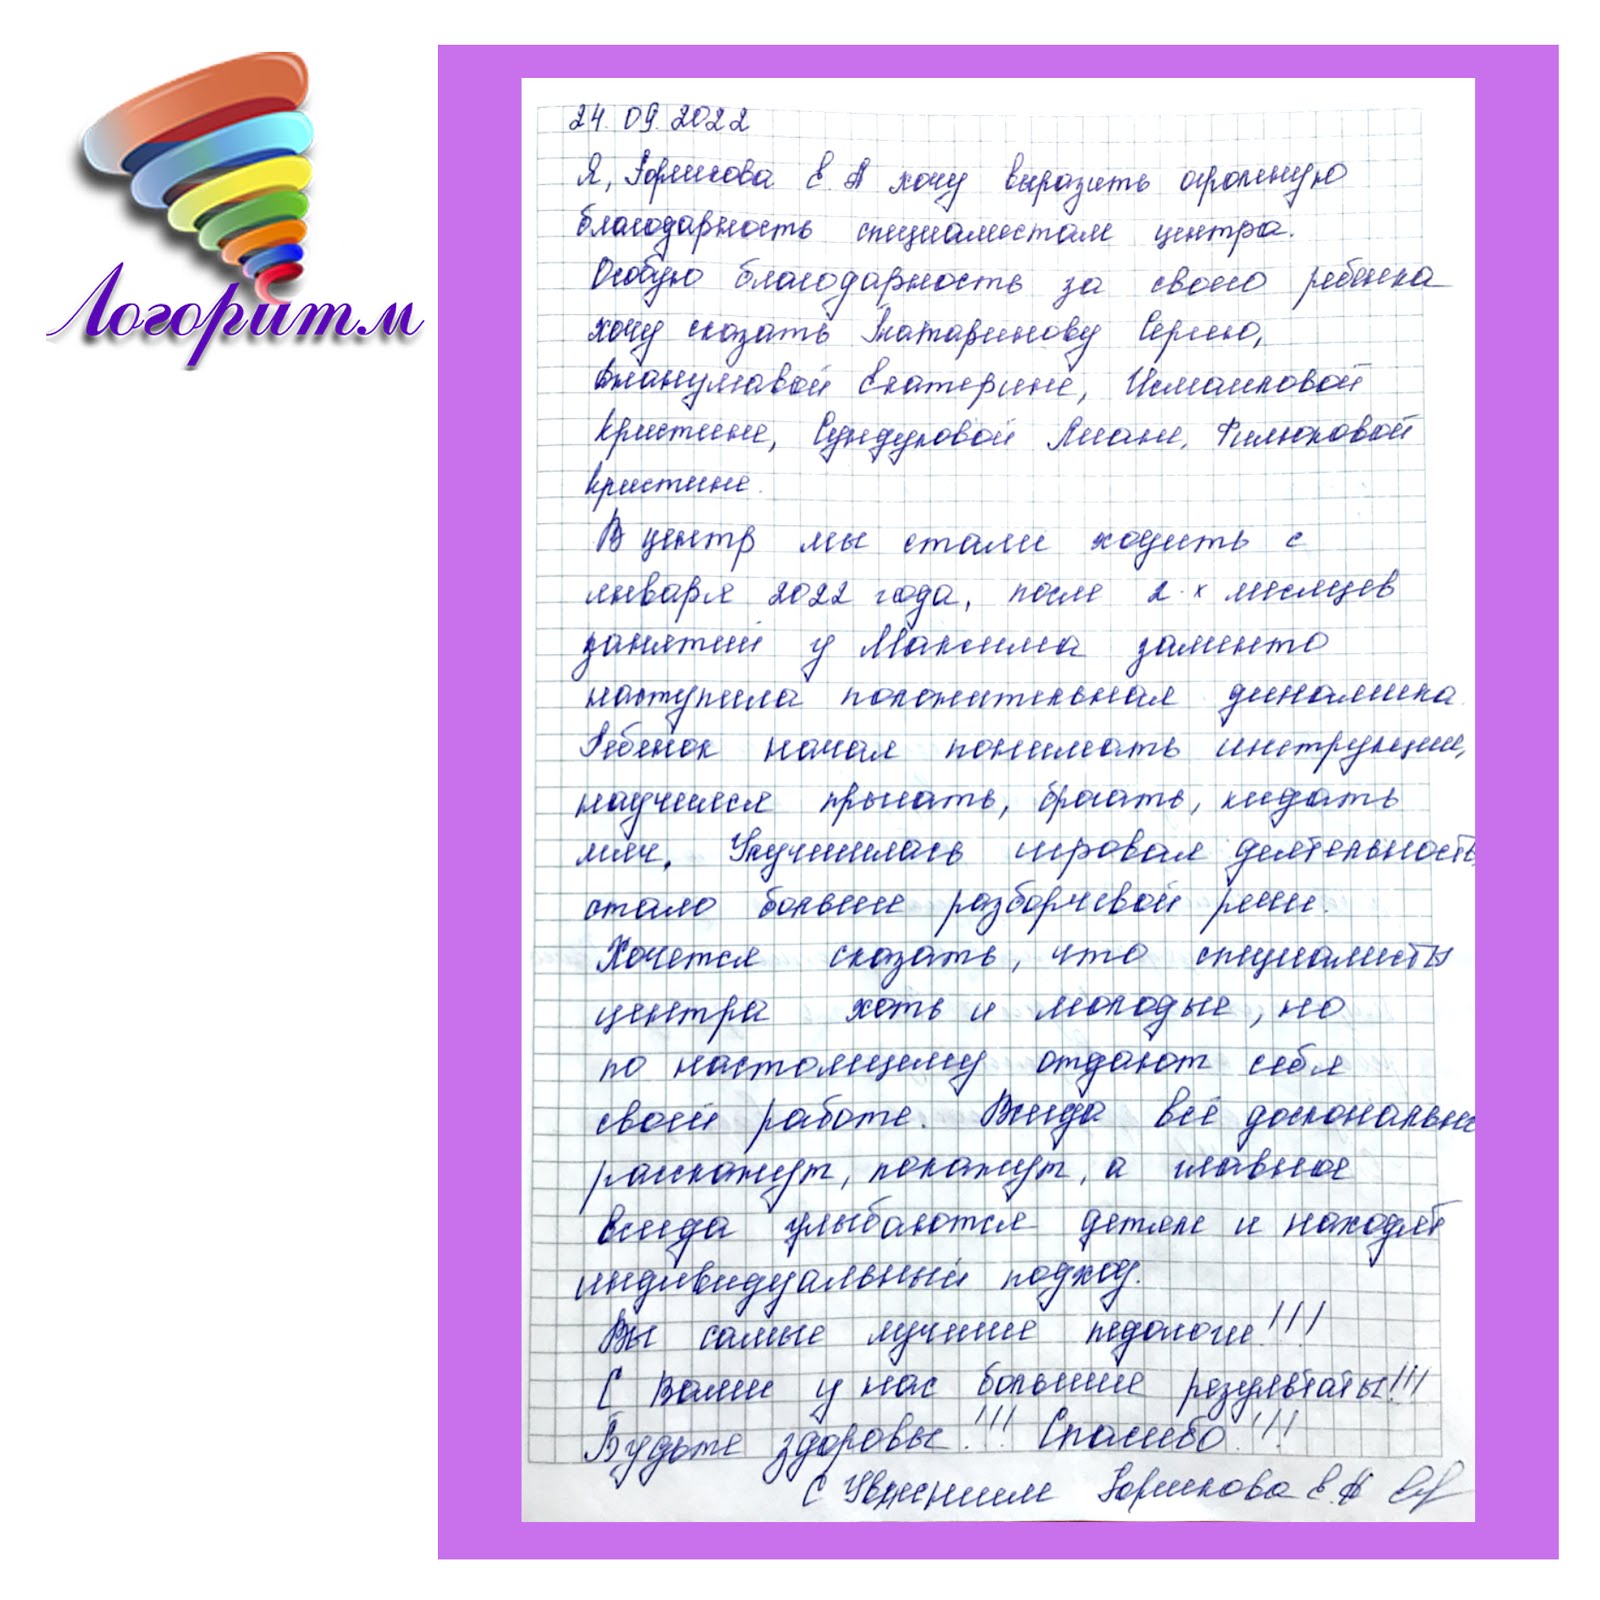 Логоритм
24.09.2022
Я, Е. А хочу выразить огромную
благодарность специалистам центра.
Особую благодарность за своего ребенка
хочу сказать Татаринову Сергею,
Екатерине, Исмаиловой
Кристине, Сундуковой Лиане, Филюковой
Кристине.
В центр мы стали ходить с
января 2022 года, после 2-х месяцев
занятий у Максима заметно
наступила положительная динамика.
Ребенок начал понимать инструкции,
научился прыгать, бросать, кидать
мяч, Улучшилась игровая деятельность,
стало больше разборчивой речи.
Хочется сказать, что специалисты
центра хоть и молодые, но
по настоящему отдают себя
своей работе. Всегда всё досконально
расскажут, покажут, а главное
всегда улыбаются детям и находят
индивидуальный подход.
Вы самые лучшие педагоги!!!
С Вами у нас большие результаты!!!
Будьте здоровы!!! Спасибо!!!
С Уважением Е. А